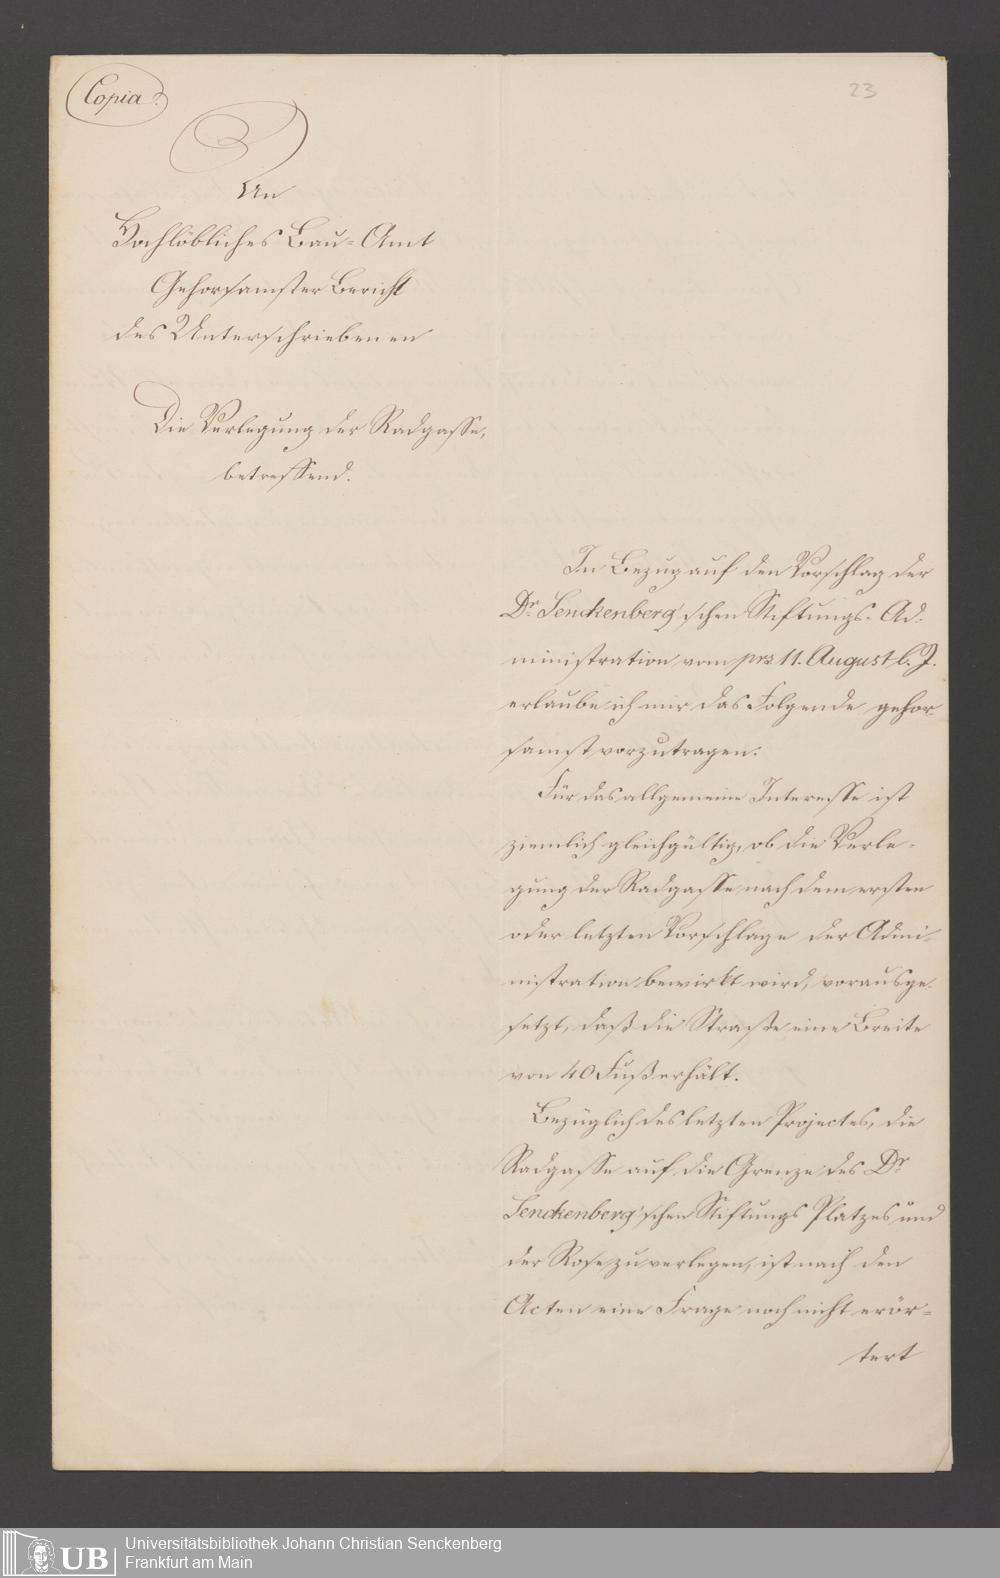 Copia.
23
An
Hochlöbliches Bau-Amt
Gehorsamster Bericht
des Unterschriebenen
Die Verlegung der Radgasse,
betreffend.
In Bezug auf den Vorschlag der
Dr. Senckenberg'schen Stiftungs-Ad-
ministration vom prs 11. August l. J.
erlaube ich mir das Folgende gehor-
samst vorzutragen:
Für das allgemeine Interesse ist
ziemlich gleichgültig, ob die Verle-
gung der Radgasse nach dem ersten
oder letzten Vorschlage der Admi-
nistration bewirkt wird, vorausge-
setzt, daß die Straße eine Breite
von 40 Fuß erhält.
Bezüglich des letzten Projectes, die
Radgasse auf die Grenze des Dr.
Senckenberg'schen Stiftungs Platzes und
der Rose zu verlegen, ist nach den
Acten eine Frage noch nicht erör-
tert
UB
Universitätsbibliothek Johann Christian Senckenberg
Frankfurt am Main